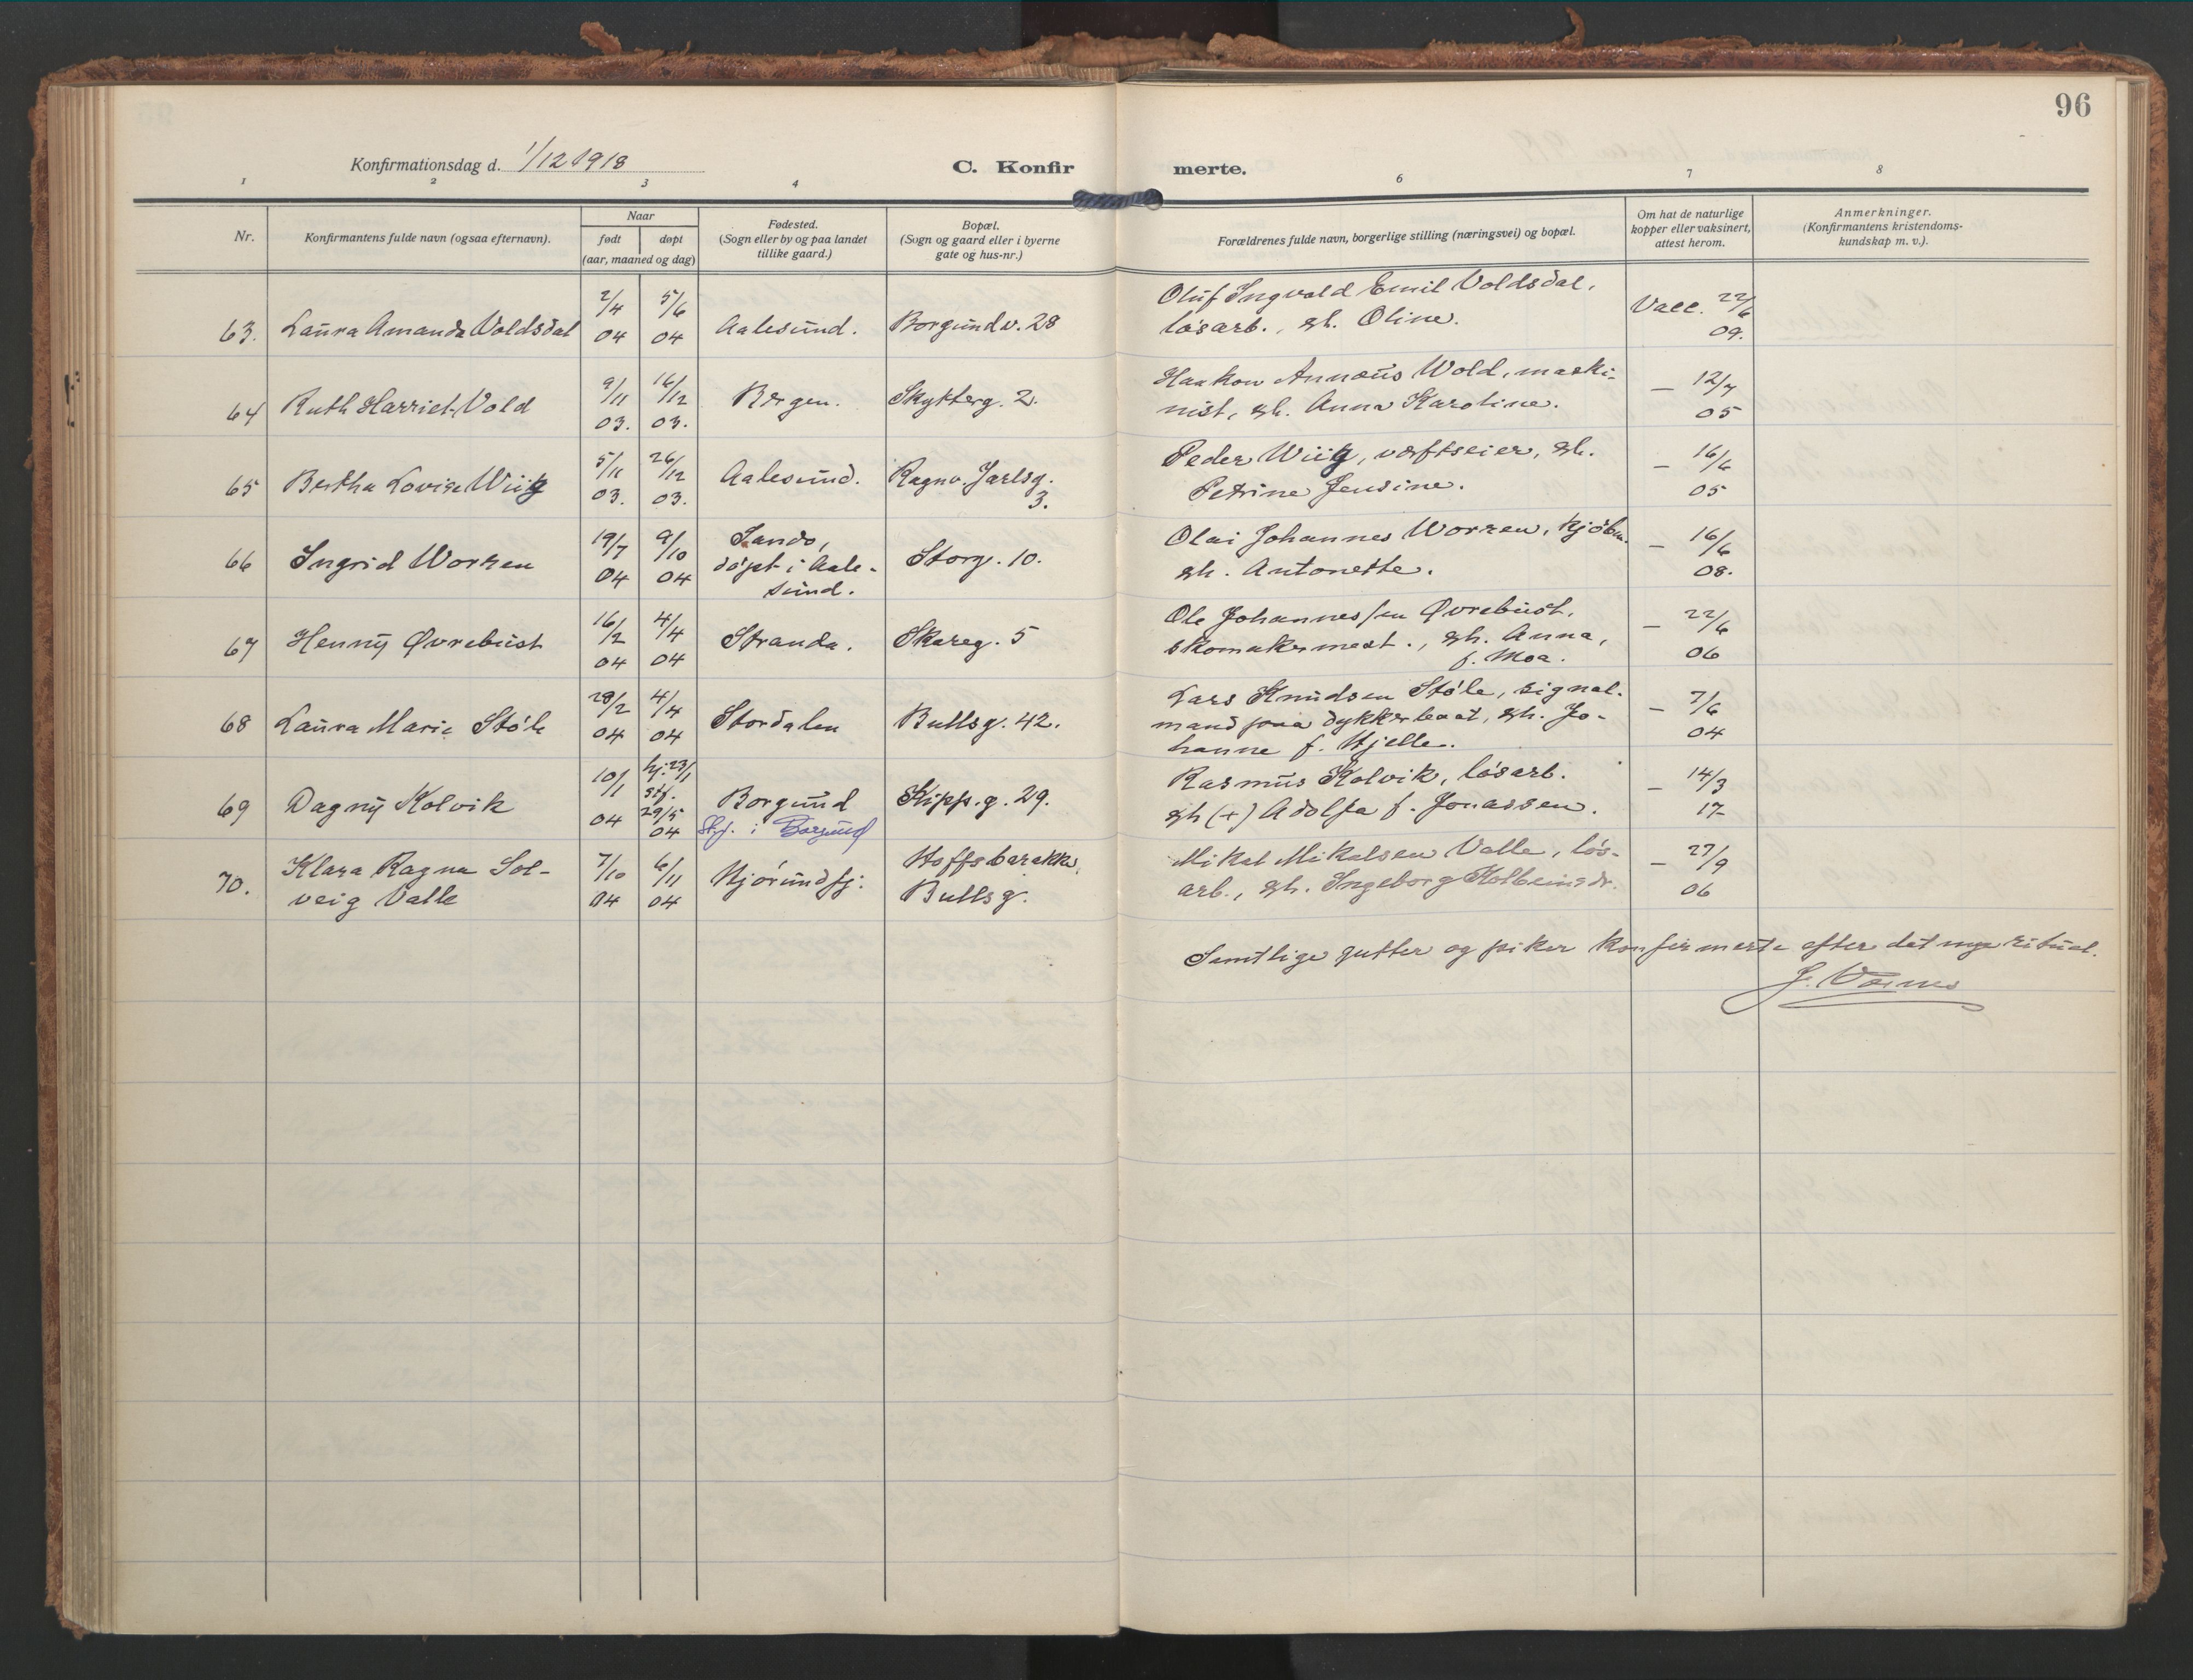 96
Konfirmationsdag d. 1/12 1918
C. Konfir merte.
1 2 3 4 6 7 8
Nr.
Konfirmantens fulde navn (ogsaa efternavn).
Naar
født døpt
(aar, maaned og dag)
Fødested.
(Sogn eller by og paa landet
tillike gaard.)
Bopæl.
(Sogn og gaard eller i byerne
gate og hus-nr.)
Forældrenes fulde navn, borgerlige stilling (næringsvei) og bopæl.
Om hat de naturlige
kopper eller vaksinert,
attest herom.
Anmerkninger.
(Konfirmantens kristendoms-
kundskap m. v.).
63. Laura Amanda Voldsdal
2/4 04
5/6 04
Aalesund.
Borgundv. 28
Oluf Ingvald Emil Voldsdal,
løsarb., gh. Oline.
Vacc. 22/6 09.
64 Ruth Harriet Vold
9/11 03.
16/12 03.
Bergen.
Skytterg. 2.
Haakon Annæus Wold, maski-
nist, gh. Anna Karoline.
— 12/7 05
65 Bertha Lovise Wiig
5/11 03.
26/12 03.
Aalesund.
Ragnv. Jarlsg.
3.
Peder Wiig, verftseier, gh.
Petrine Jensine.
— 16/6 05
66 Ingrid Worren
19/7 04
9/10 04
Sandø,
døpt i Aale-
sund.
Storg. 10.
Olai Johannes Worren, kjøbm.
gh. Antonette.
— 16/6 08.
67 Henny Øvrebust
16/2 04
4/4 04
Stranda.
Skareg. 5
Ole Johannessen Øvrebust,
skomakermest., gh. Anna,
f. Moa.
— 22/6 06
68 Laura Marie Støle
28/2 04
4/4 04
Stordalen
Bullsg. 42.
Lars Knudsen Støle, signal-
mand paa dykkerbaat, gh. Jo-
hanne f. Hjelle.
— 7/6 04
69 Dagny Kolvik
10/1 04
hj. 23/1
stf.
29/5 04
Borgund
Stf. i Borgund
Kipp.g. 29.
Rasmus Kolvik, løsarb.
gh (+) Adolfa f. Jonassen.
— 14/3 17
70. Klara Ragna Sol-
veig Valle
7/10 04
6/11 04
Hjørundfj.
Hoffsbarakke,
Bullsg.
Mikal Mikalsen Valle, løs-
arb., gh. Ingeborg Kolbeinsdr.
— 27/9 06
Samtlige gutter og piker konfirmerte efter det nye ritual.